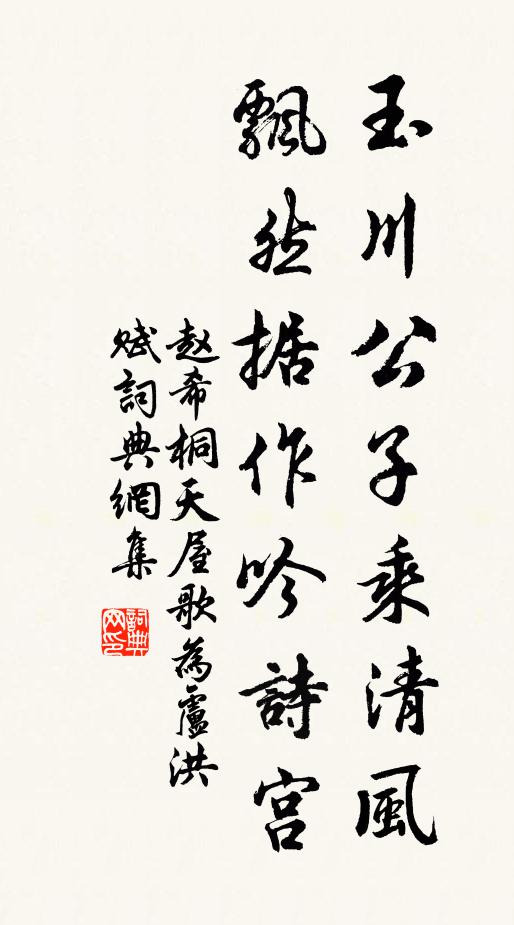 玉川公子乘清風
飄然据作吟詩宫
赵希桐天屋歌為盧洪
赋詞典網集
詞典網印